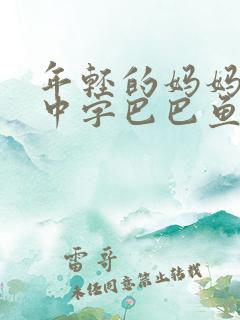 年轻的妈妈
中字巴巴鱼
雷哥
未经同意禁止转载